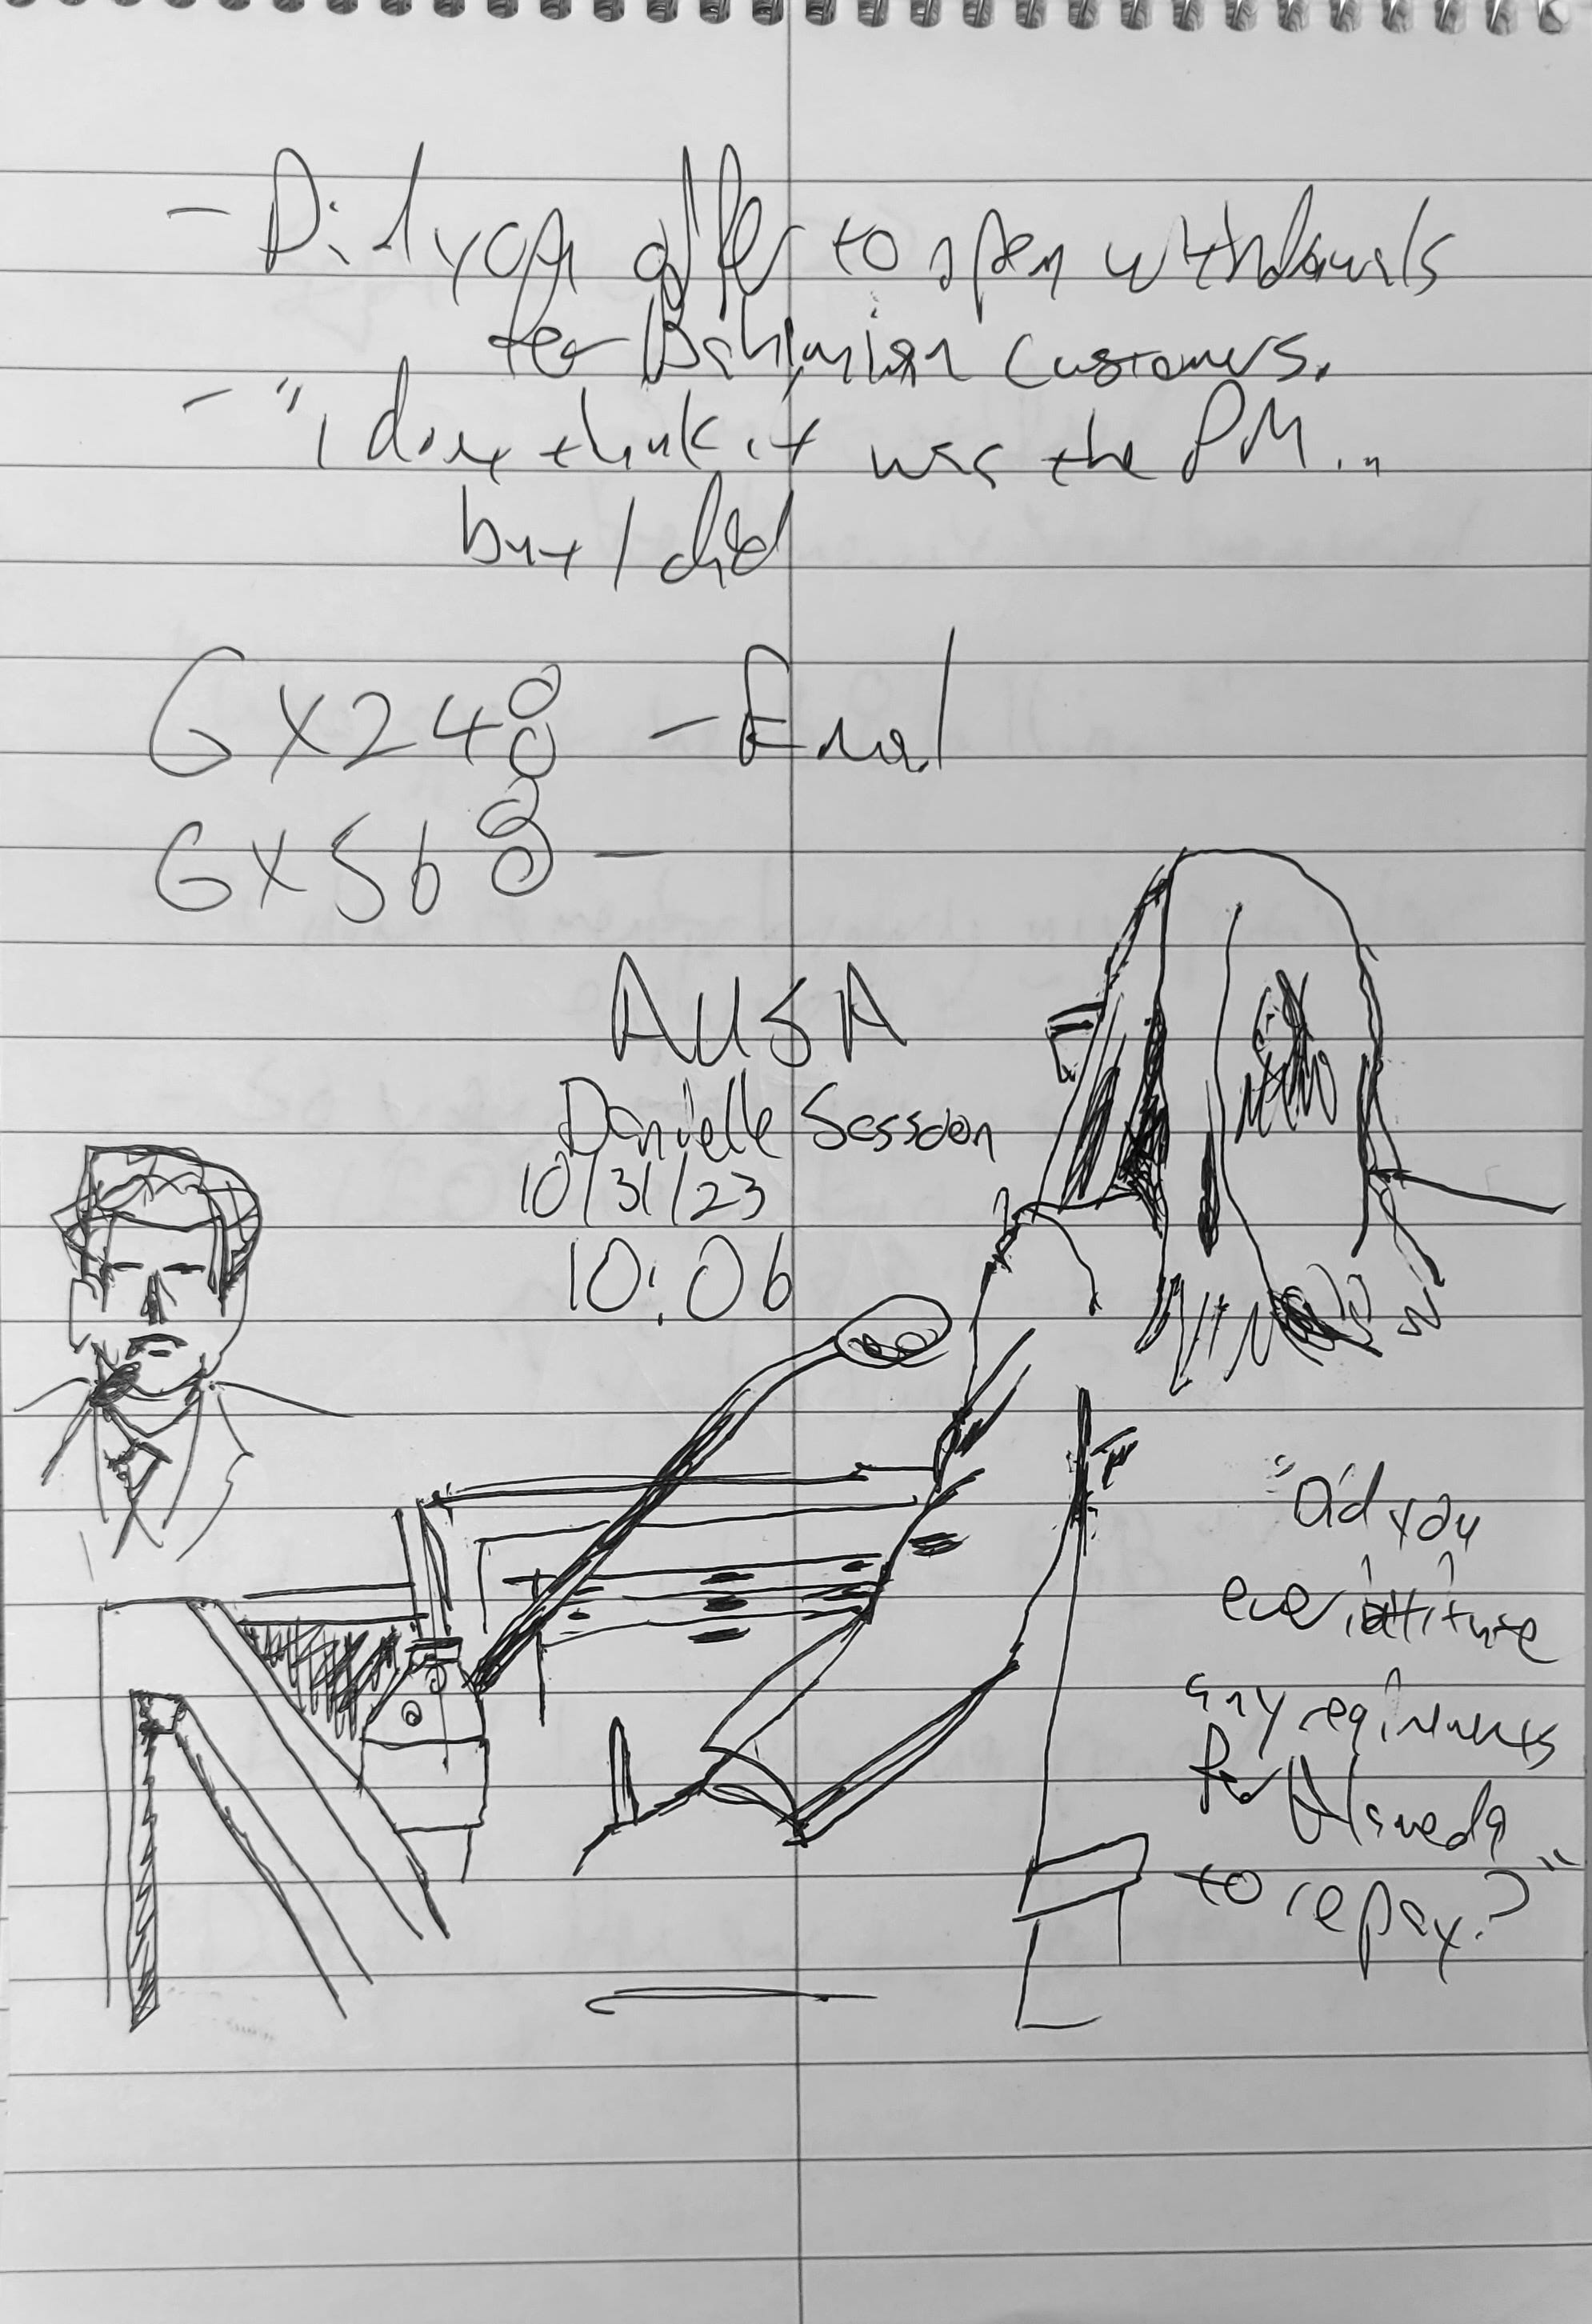 - Did you offer to open withdrawals
for Bahimian customers.
- "I dont think it was the PM...
but I did
GX248 - Email
GX568 -
AUSA
Danielle Sassoon
10/31/23
10:06
"Did you
ever
any
for Alameda
to repay?"